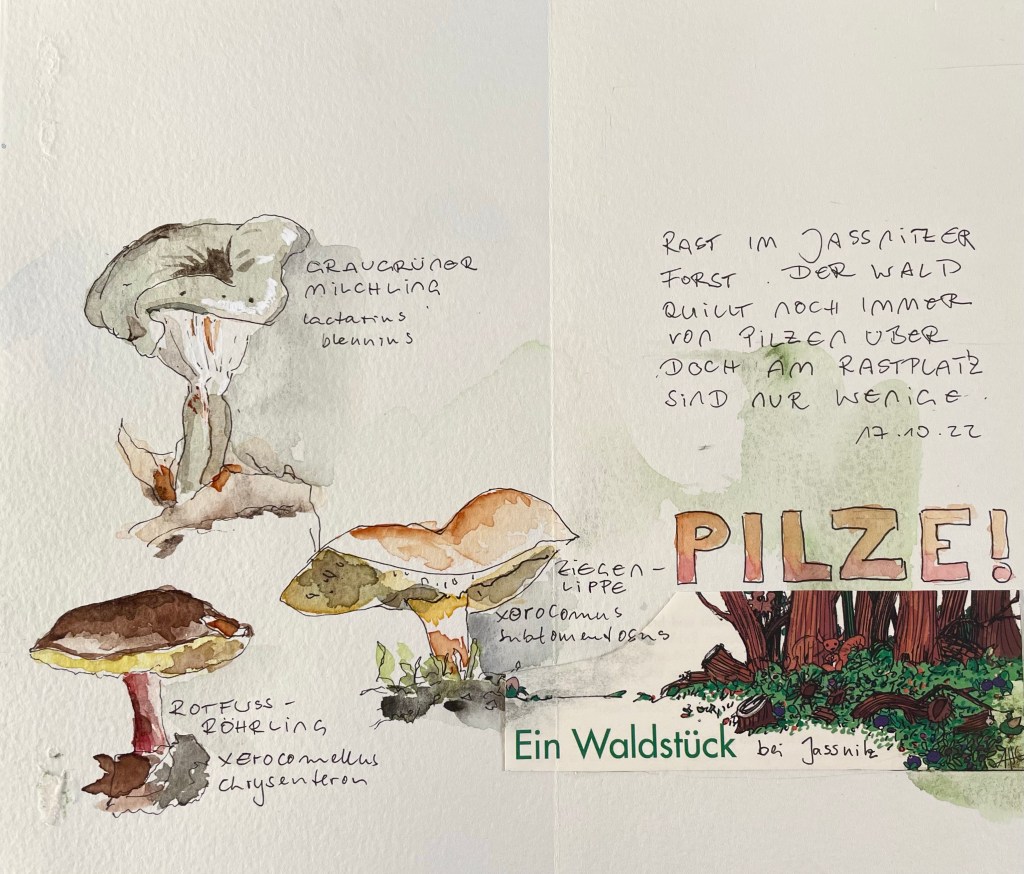 GRAUGRÜNER
MILCHLING
lactarius
blennius
RAST IM JASSNITZER
FORST. DER WALD
QUILLT NOCH IMMER
VON PILZEN ÜBER
DOCH AM RASTPLATZ
SIND NUR WENIGE.
17.10.22
PILZE!
ZIEGEN-
LIPPE
xerocomus
subtomentosus
ROTFUSS-
RÖHRLING
xerocomellus
chrysenteron
Ein Waldstück bei Jassnitz